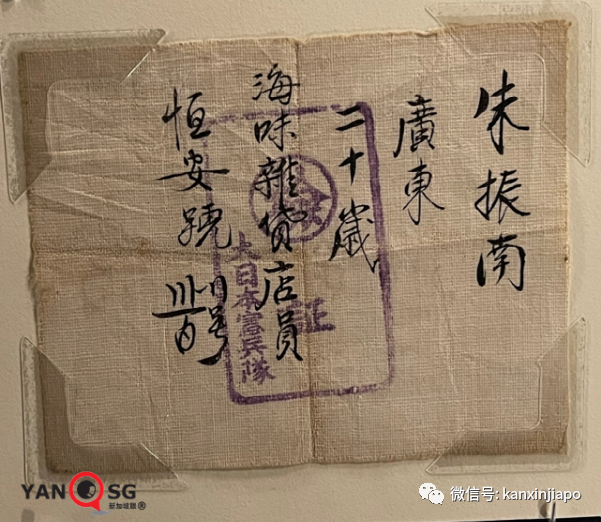 朱振南
廣東
二十歲
海味雜貨店員
恒安蹺 号
証
大日本憲兵隊
YAN SG
新加坡眼®
微信号: kanxinjiapo